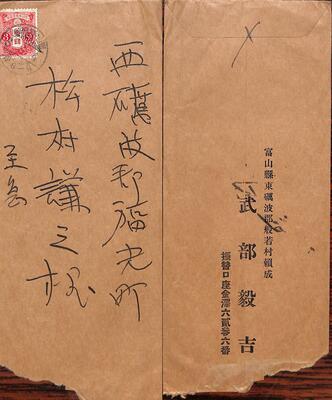 西礪波郡福光町
松村謙三様
至急
富山縣東礪波郡般若村頼成
武部毅吉
振替口座金澤六貳参六番